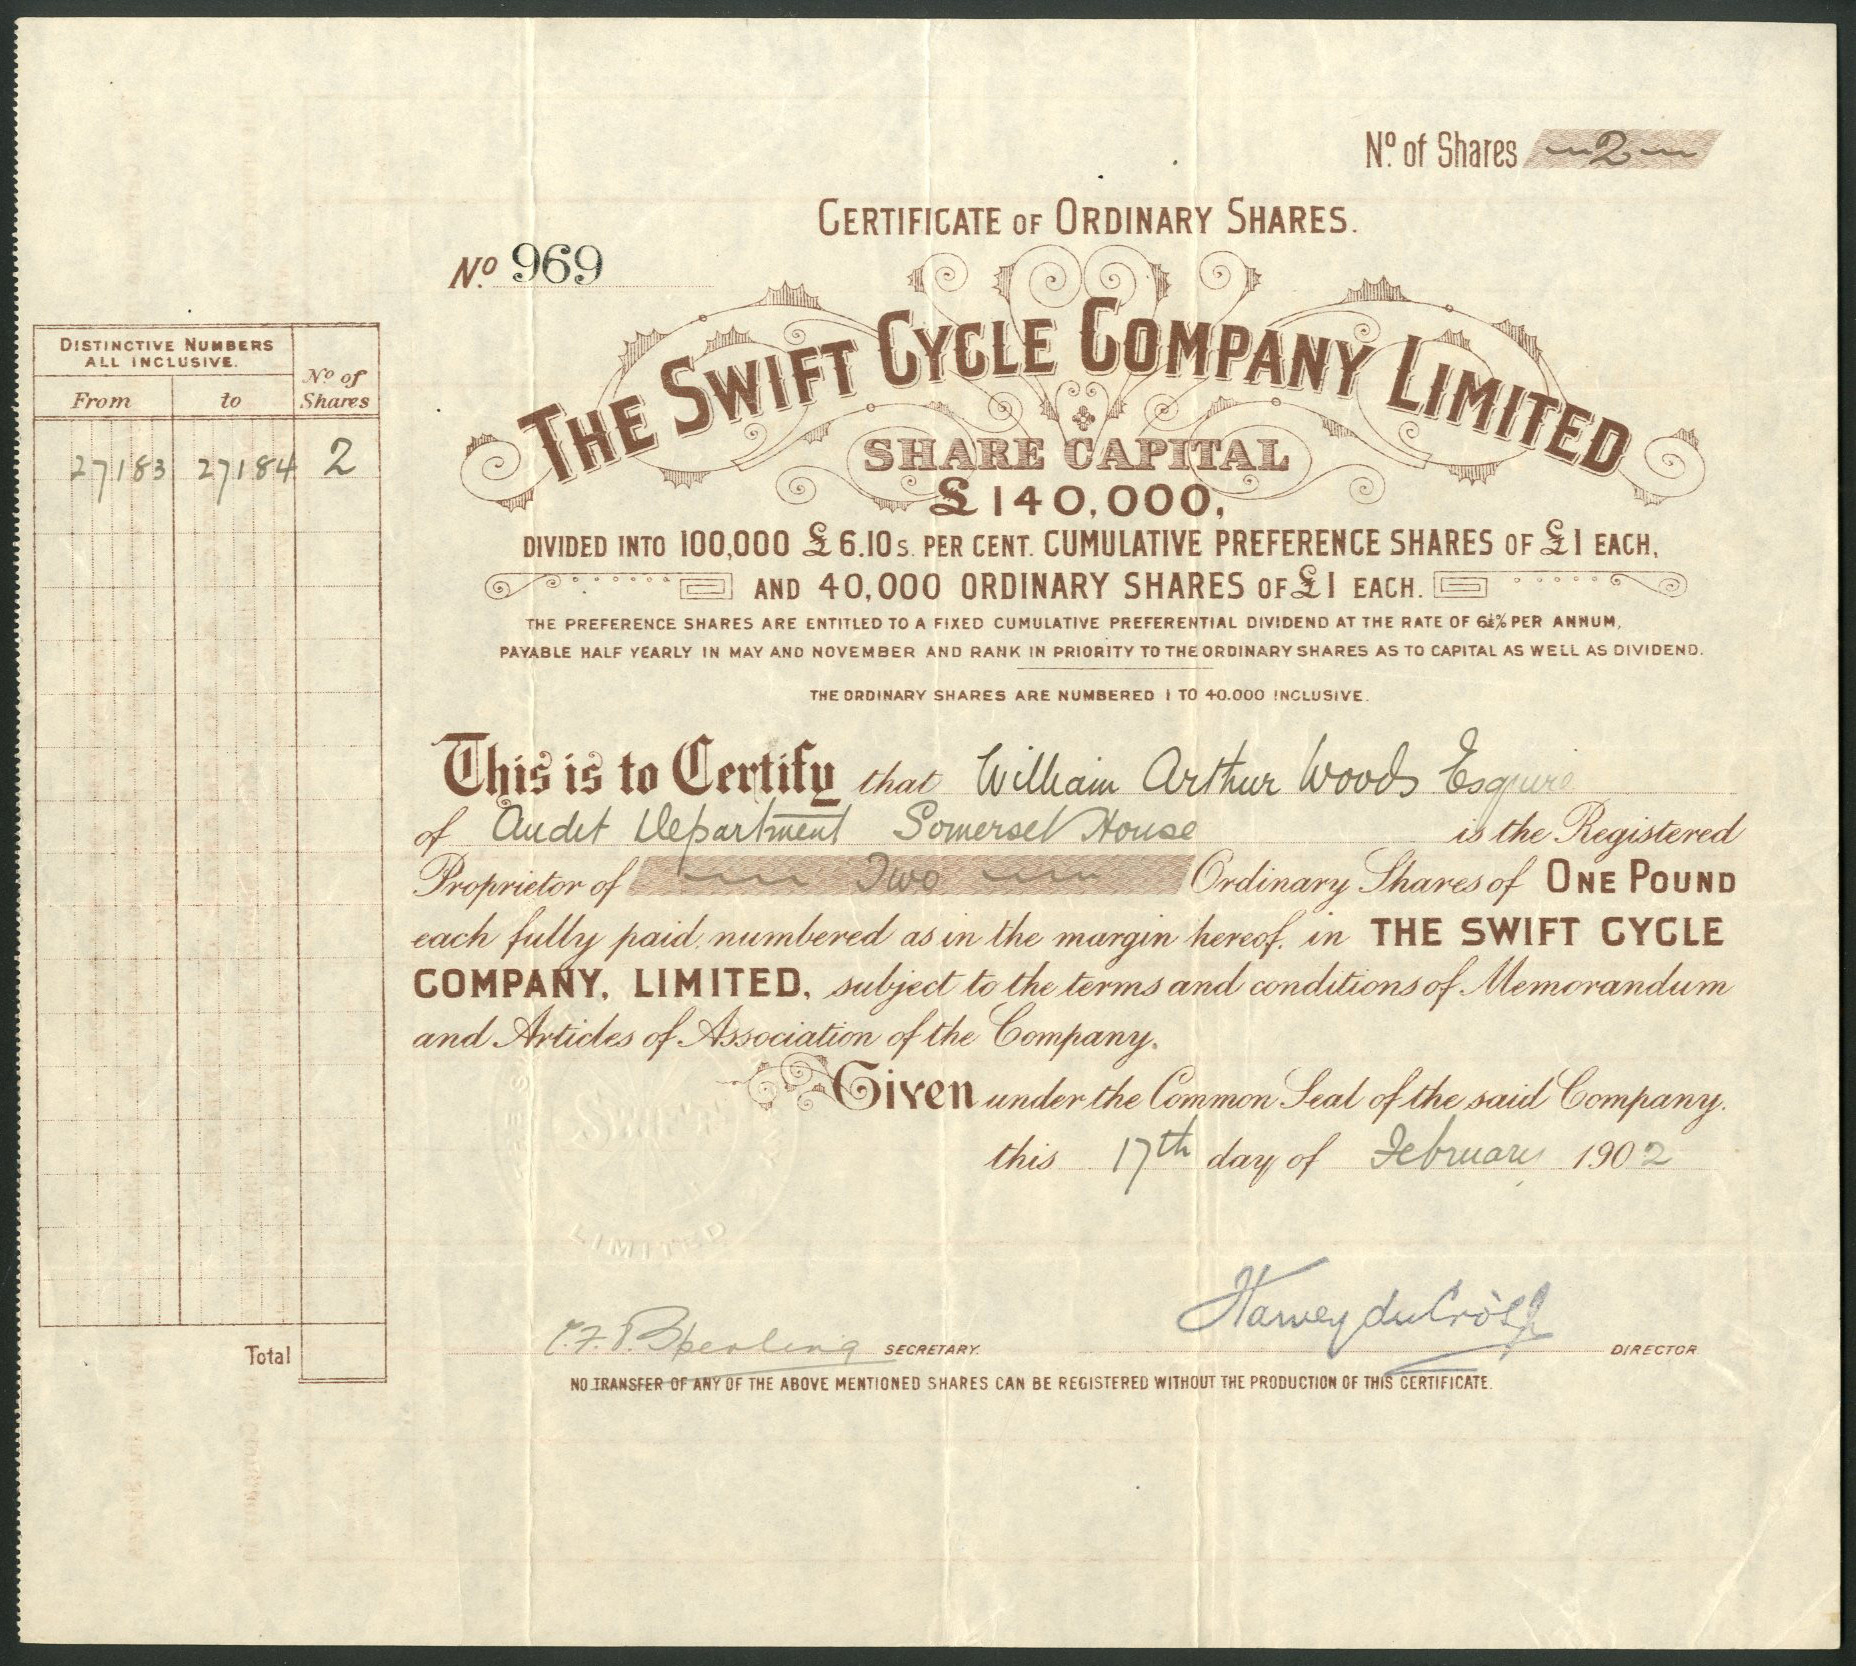 No. of Shares 2
CERTIFICATE OF ORDINARY SHARES.
No. 969
THE SWIFT CYCLE COMPANY LIMITED
SHARE CAPITAL
£140,000,
DIVIDED INTO 100,000 £6.10s. PER CENT. CUMULATIVE PREFERENCE SHARES OF £1 EACH,
AND 40,000 ORDINARY SHARES OF £1 EACH.
THE PREFERENCE SHARES ARE ENTITLED TO A FIXED CUMULATIVE PREFERENTIAL DIVIDEND AT THE RATE OF 6½% PER ANNUM,
PAYABLE HALF YEARLY IN MAY AND NOVEMBER AND RANK IN PRIORITY TO THE ORDINARY SHARES AS TO CAPITAL AS WELL AS DIVIDEND.
THE ORDINARY SHARES ARE NUMBERED 1 TO 40.000 INCLUSIVE.
DISTINCTIVE NUMBERS
ALL INCLUSIVE.
No of
Shares
From to
27183 27184 2
Total
This is to Certify that William Arthur Woods Esquire
of Audit Department Somerset House is the Registered
Proprietor of Two Ordinary Shares of ONE POUND
each fully paid, numbered as in the margin hereof, in THE SWIFT CYCLE
COMPANY, LIMITED, subject to the terms and conditions of Memorandum
and Articles of Association of the Company.
Given under the Common Seal of the said Company.
this 17th day of February 1902
LIMITED
Harvey du Cros Jr
SECRETARY.
DIRECTOR
NO TRANSFER OF ANY OF THE ABOVE MENTIONED SHARES CAN BE REGISTERED WITHOUT THE PRODUCTION OF THIS CERTIFICATE.